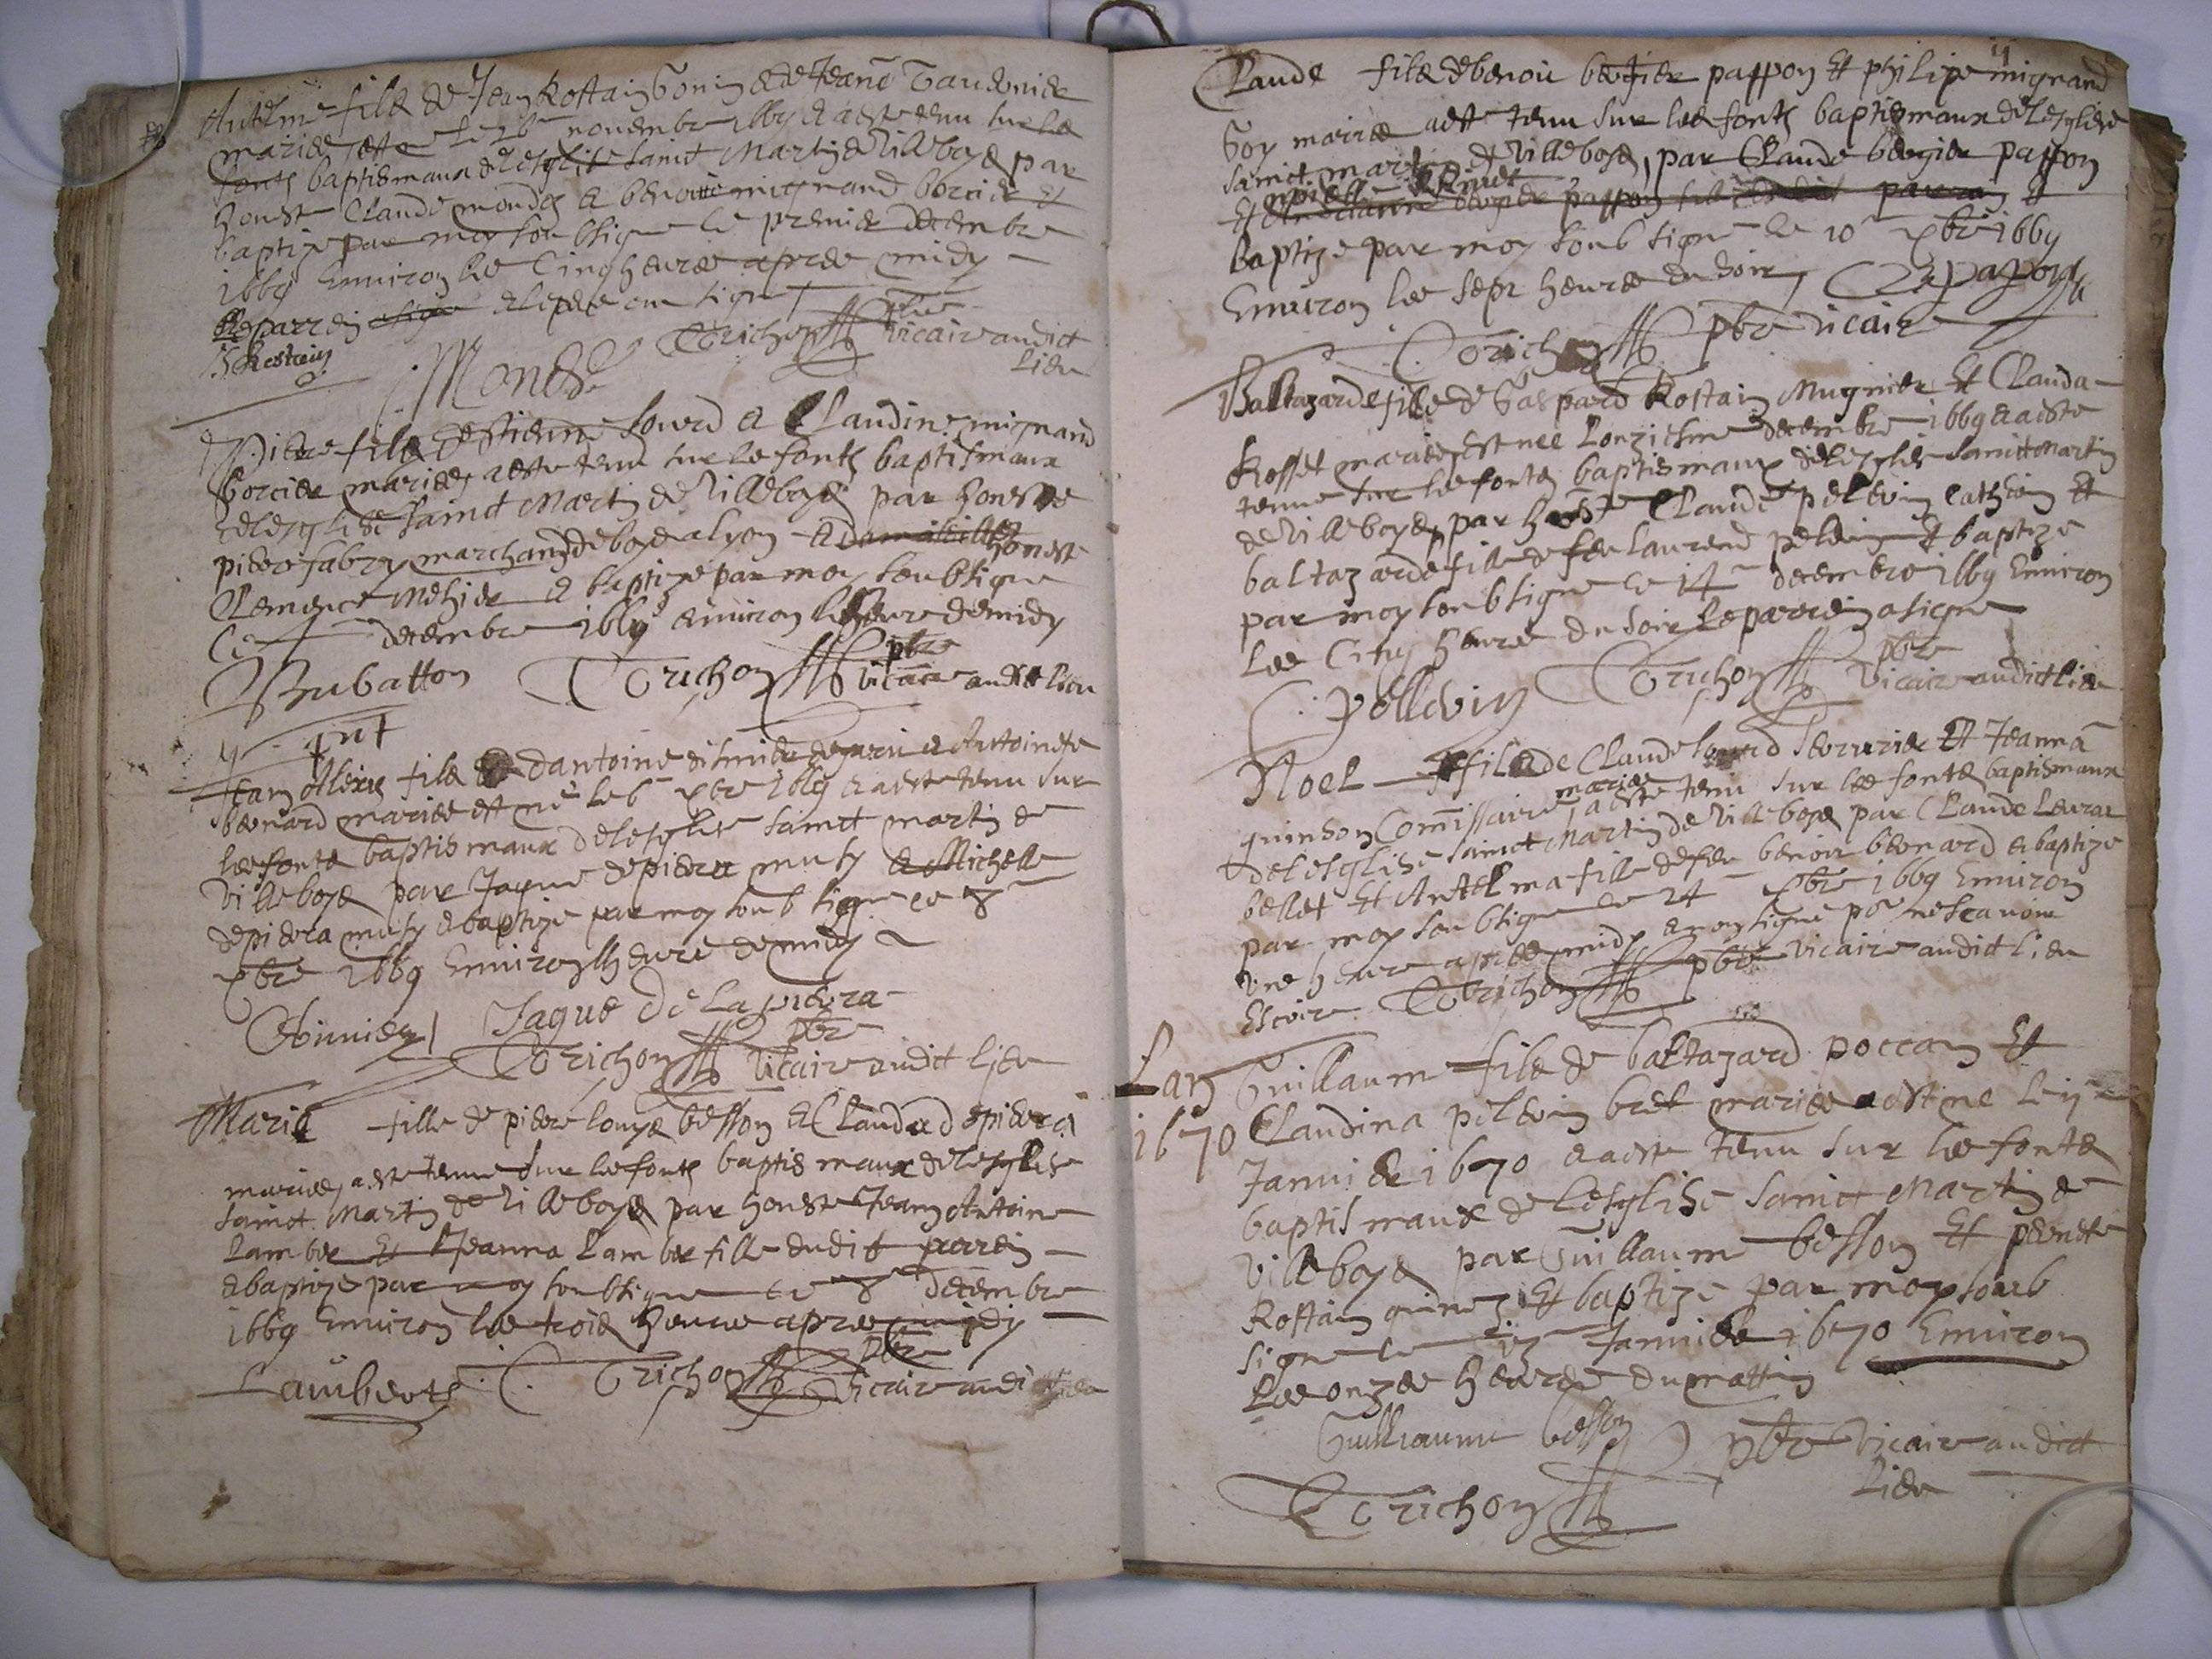 Antelme filz de Jean Rostaing Gonin et de Jeane
mariez est ne le 26e novembre 1669 et a este tenu sur les
fonts baptismaux de lesglise sainct Martin de Villeboys par
honeste Claude mondes et benoitte mignand borcier et
baptize par moy soubsigne le premier decembre
1669 Environ les Cinq heures apres midy
le parrein et le pere ont signe
J Rostaing Trichon pbre vicaire audict
Lieu
Pierre filz destienne Lourd et Claudine mignand
borcier mariez, a este tenu sur les fonts baptismaux
de lesglise sainct Martin de Villeboys par honeste
pierre fabry marchand de boys a lyon et honeste
Clemence Mehier et baptize par moy soubsigne
Ce decembre 1669 environ lheure de midy
Bubatton Trichon pbre vicaire audict lieu
Jean Alexis filz dantoine et Antoinete
bernard mariez est ne le 6e xbre 1669 et a este tenu sur
les fonts baptismaux de lesglise sainct martin de
Villeboys par Jaque depierra musy et Michelle
depierra musy et baptize par moy soubsigne ce 8e
xbre 1669 Environ lheure de midy
Jaque De la pierra
Trichon pbre Vicaire audict Lieu
Marie fille de pierre louys besson et Clauda depierra
mariez, a este tenue sur les fonts baptismaux de lesglise
sainct Martin de Villeboys par honeste Jean Antoine
Lamber Et Jeanna Lamber fille dudit parrein
et baptize par moy soubsigne ce 8e decembre
1669 Environ les trois heures apres midy
Lambert Trichon pbre Vicaire audict lieu
11
Claude filz de benoit bergier passon Et philipe mignand
Goy mariez a este tenu sur les fonts baptismaux de lesglise
sainct martin de Villeboys, par Claude bergier passon
Et
baptize par moy soubsigne le 10e xbre 1669
Environ les sept heures du soir
Trichon pbre vicaire
Baltazarde fille de Gaspard Rostaing Mugnier Et Clauda
Rosset mariez, Est nee lonziesme decembre 1669 et a este
tenue sur les fonts baptismaux de lesglise sainct Martin
de Villeboys, par honeste Claude pelevin Cathein Et
baltazarde fille de feu Laurend pelevin Et baptize
par moy soubsigne ce 14e decembre 1669 Environ
les Cinq heures du soir le parrein a signe
Pellevin Trichon pbre Vicaire audict lieu
Noel filz de Claude Lourd serrurier Et Jeanna
quinson Commissaire mariez, a este tenu sur les fonts baptismaux
de lesglise sainct Martin de Villeboys par Claude Leurar
bellet Et Antelma fille de feu benoit bernard et baptize
par moy soubsigne ce 24e xbre 1669 Environ
Une heure apres midy et nont signe pour ne scavoir
Escrire Trichon pbre Vicaire audict lieu
Lan 1670
Guillaume filz de baltazard poccan Et
Claudina pelevin bret mariez est ne le ij
Janvier 1670 et a este tenu sur les fonts
baptismaux de lesglise sainct Martin de
Villeboys par Guillaume besson Et pernete
Rostaing Et baptize par moy soub
signe le Janvier 1670 Environ
les onze heures du mattin
Guilliaume besson pbre vicaire audict
Lieu
Trichon